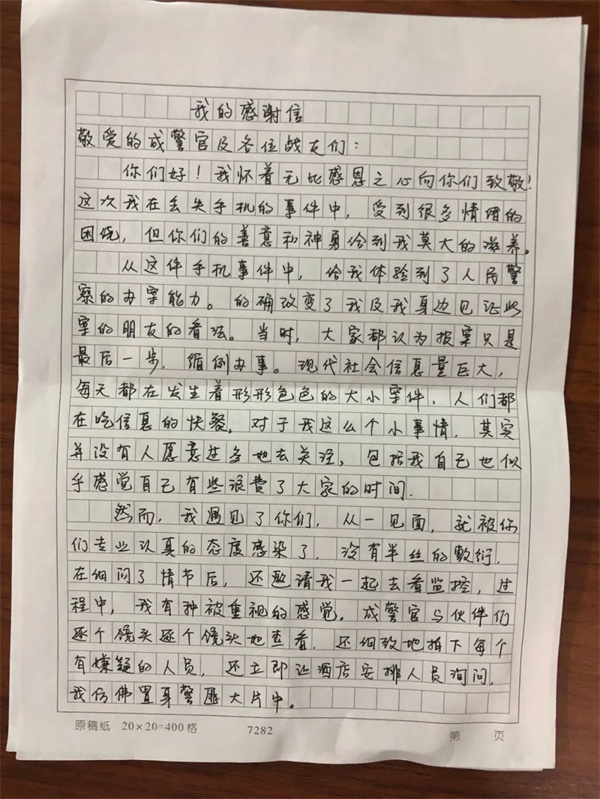 我的感谢信
敬爱的成警官及各位战友们：
你们好！我怀着无比感恩之心向你们致敬！
这次我在丢失手机的事件中，受到很多情绪的
困扰，但你们的善意和神勇给到我莫大的滋养。
从这件手机事件中，给我体验到了人民警
察的办案能力。的确改变了我及我身边见证此
案的朋友的看法。当时，大家都认为报案只是
最后一步，循例办事。现代社会信息量巨大，
每天都在发生着形形色色的大小案件，人们都
在吃信息的快餐。对于我这么个小事情，其实
并没有人愿意过多地去关注，包括我自己也似
乎感觉自己有些浪费了大家的时间.
然而，我遇见了你们，从一见面，就被你
们专业认真的态度感染了，没有半丝的敷衍，
在细问了情节后，还邀请我一起去看监控，过
程中，我有种被重视的感觉。成警官与伙伴们
逐个镜头逐个镜头地查看，还细致地拍下每个
有嫌疑的人员，还立即让酒店安排人员询问，
我仿佛置身警匪大片中。
原稿纸 20×20=400格 7282 第 页